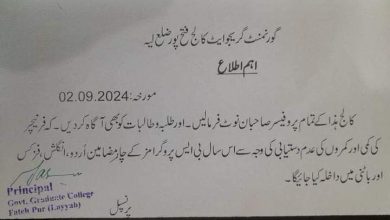 گورنمنٹ گریجوایٹ کالج فتح پور ضلع لیہ
اہم اطلاع
مورخہ: 02.09.2024
کالج ہذا کے تمام پروفیسر صاحبان نوٹ فرمالیں۔ اور طلبہ و طالبات کو بھی آگاہ کر دیں۔ کہ فرنیچر
کی کمی اور کمروں کی عدم دستیابی کی وجہ سے اس سال بی ایس پروگرامز کے چار مضامین اُردو، انگلش، فزکس
اور باٹنی میں داخلہ کیا جائیگا۔
Principal
Govt. Graduate College
Fateh Pur (Layyah)
پرنسپل